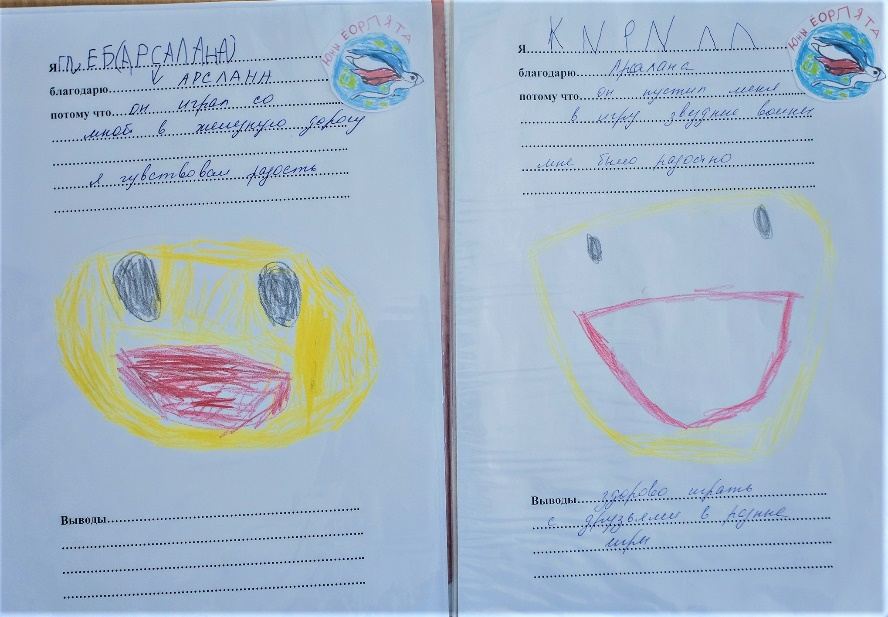 ЮНЫЕ ОРЛЯТА
Я ГЛЕБ(АРСАЛАНА)
благодарю АРСЛАНН
потому что он играл со
мной в железную дорогу
я чувствовал радость
Выводы
ЮНЫЕ ОРЛЯТА
Я КИРИЛЛ
благодарю Арсалана
потому что он пустил меня
в игру звездные войны
мне было радостно
Выводы здорово играть
с друзьями в разные
игры